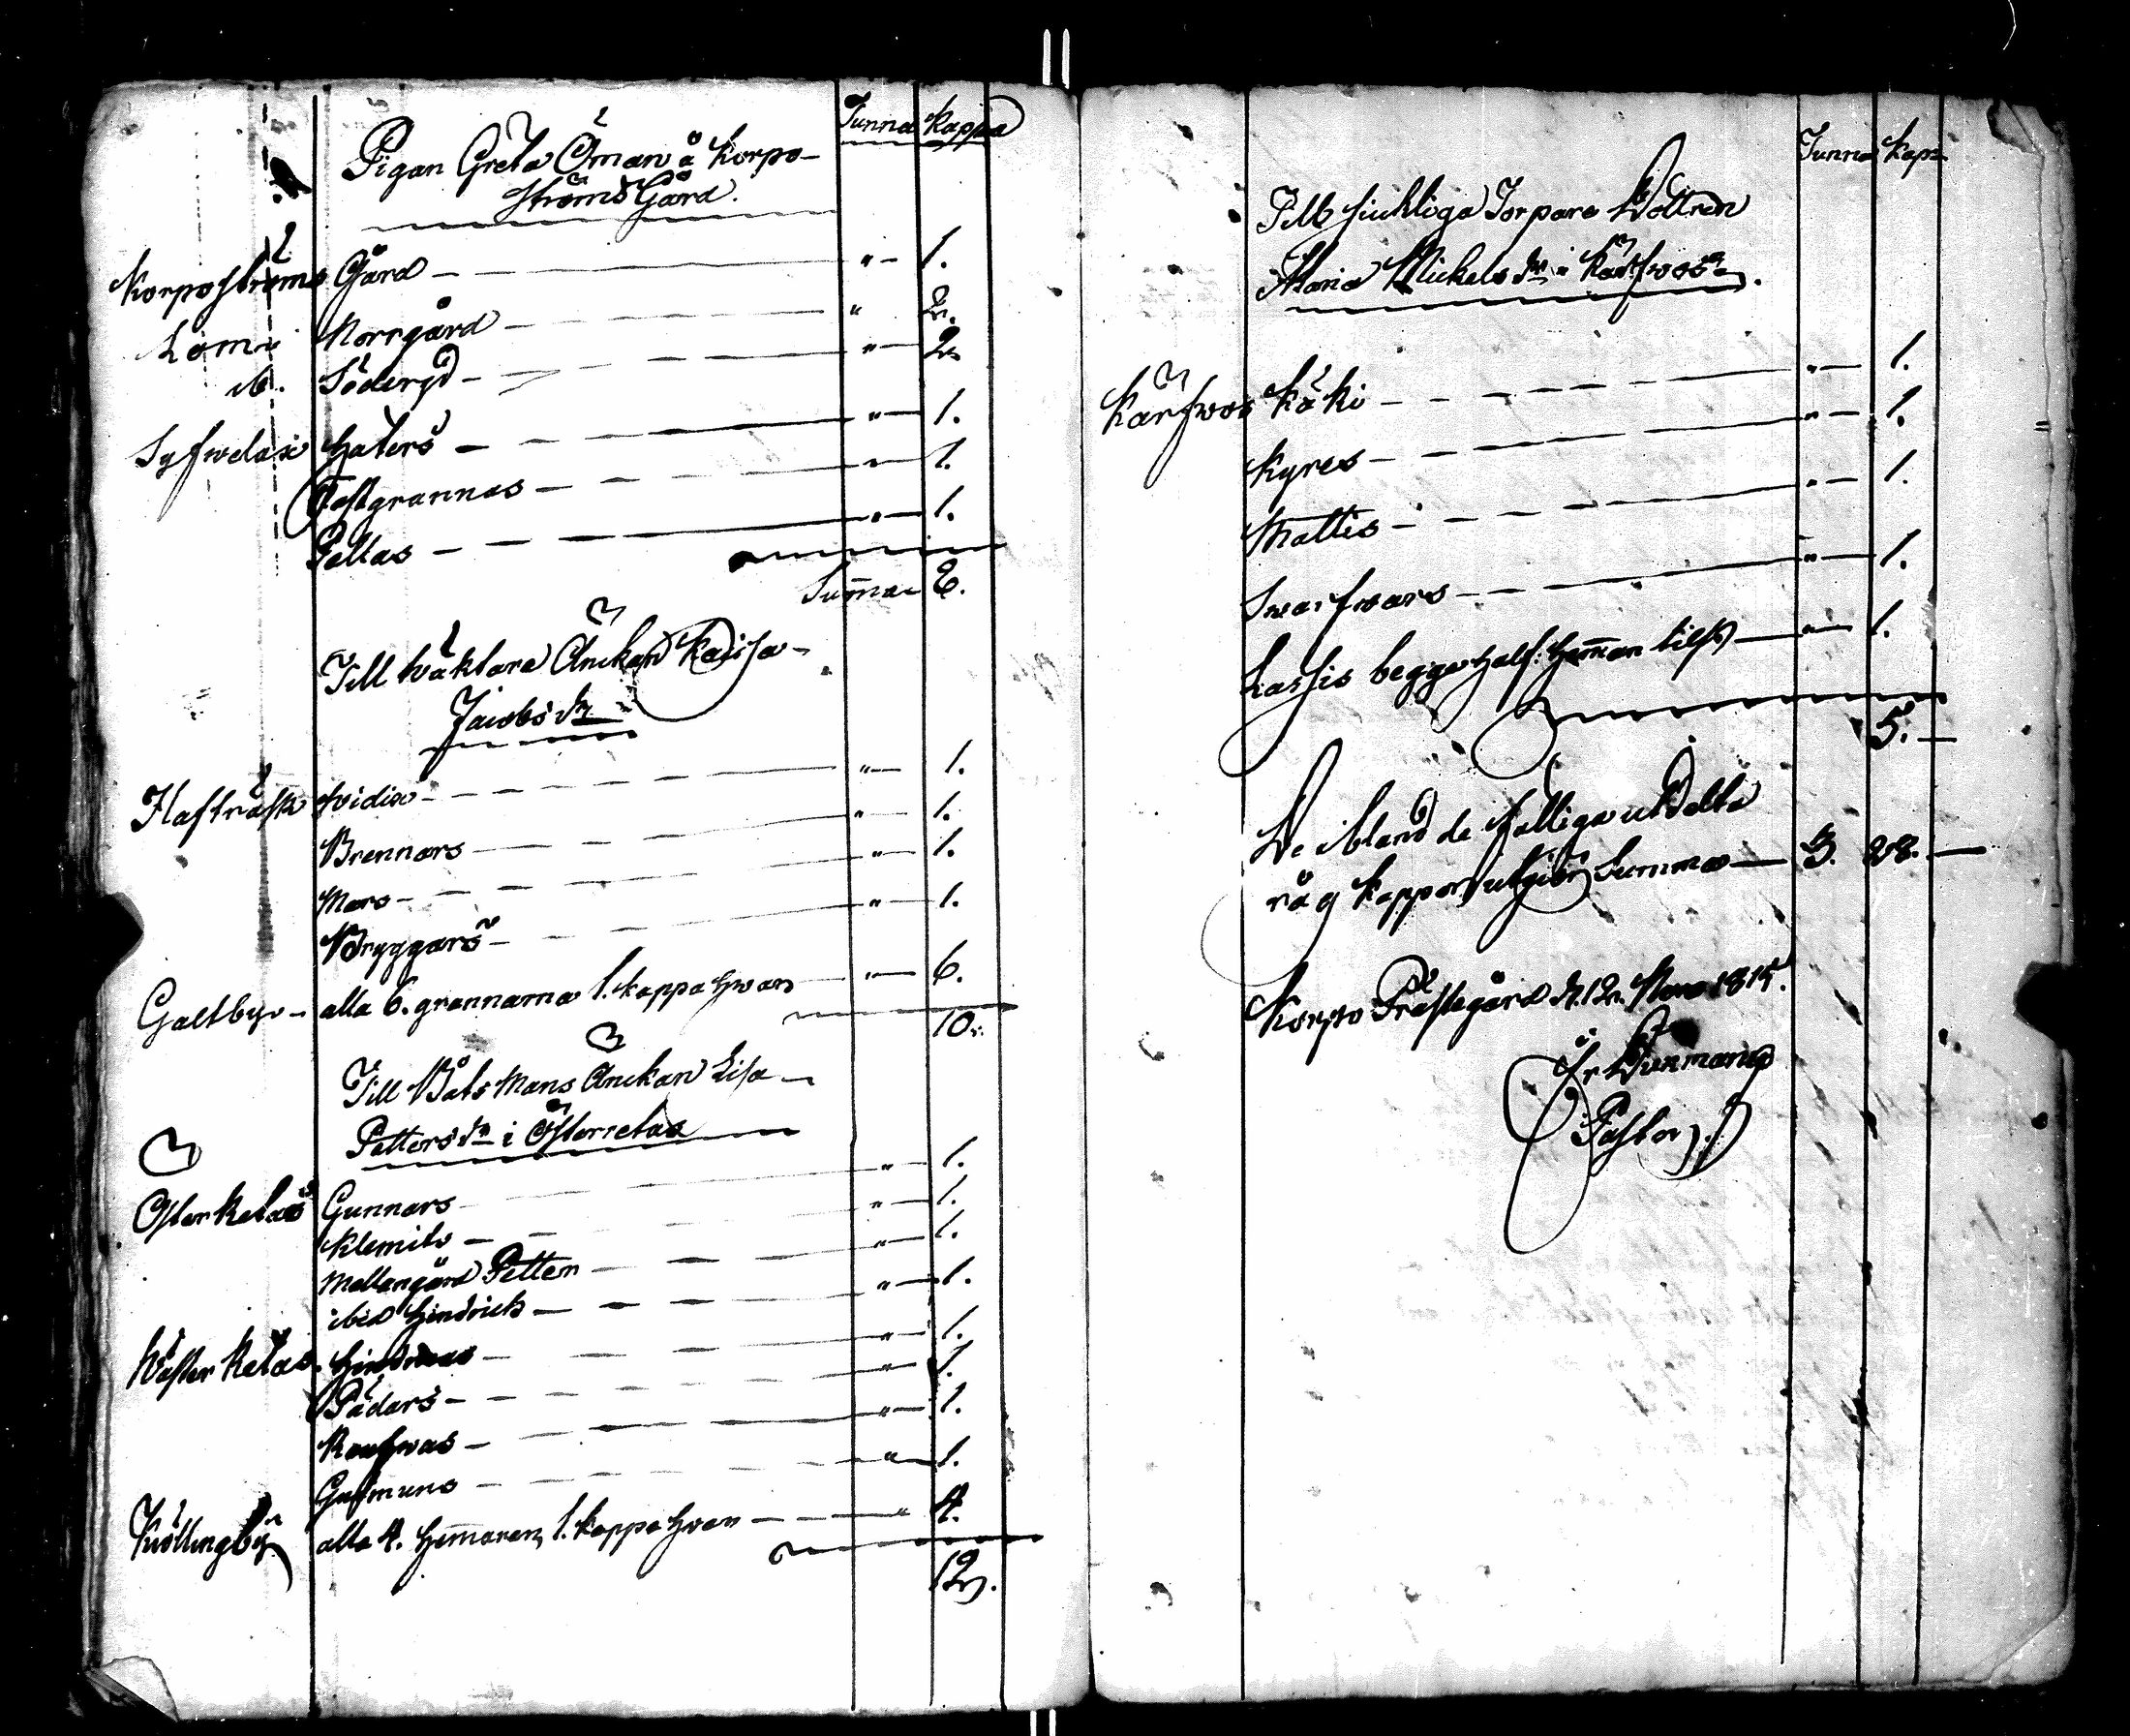 Tunna Kappa
Pigan Greta Öman å Korpo-
ströms Gård.
Korpoströms Gård - " - 1.
Lom Norrgård - " 2.
ib. Södergd - " - 2.
Syfwelax Haters - " - 1.
Östgrannas - " - 1.
Pellas - " - 1.
Summa 6.
Till Wäktare Änckan Kaisa
Jacobs dr
Hafträsk Widix - " - 1.
Brennars - " - 1.
Mars - " - 1.
Bryggars - " - 1.
Galtby - alla 6. grannarna 1. kappa hwar " - 6.
10.
Till Båts Mans Änckan Lisa
Petters dr i Österretas
Österretas Gunnars " - 1.
Klemits - " - 1.
Mellangård Petter - " - 1.
ibid Hindrick - " - 1.
Wäster Retas. " - 1.
Pädars - " - 1.
" - 1.
Gusmuns - " - 1.
alla 4. Hemanen, 1. kappa hwar - " 4.
12.
Tunna Kapp
Till siukliga Torpare Dottren
Maria Mickels dr i Kärfwois.
Kärfwois Käki - " - 1.
Kyres - " - 1.
Mattis - " - 1.
Swarfwars - " - 1.
Lassis begge half: Heman tils - " - 1.
5. -
De ibland de fattiga utdelta
råg kappor utgiör Summa - 3. 28. -
Korpo Prästegård d. 12. 1815.
Pastor.